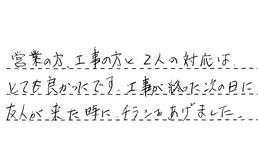 営業の方、工事の方と2人の対応は
とても良かったです。工事が終った次の日に
友人が来た時に、チラシをあげました。